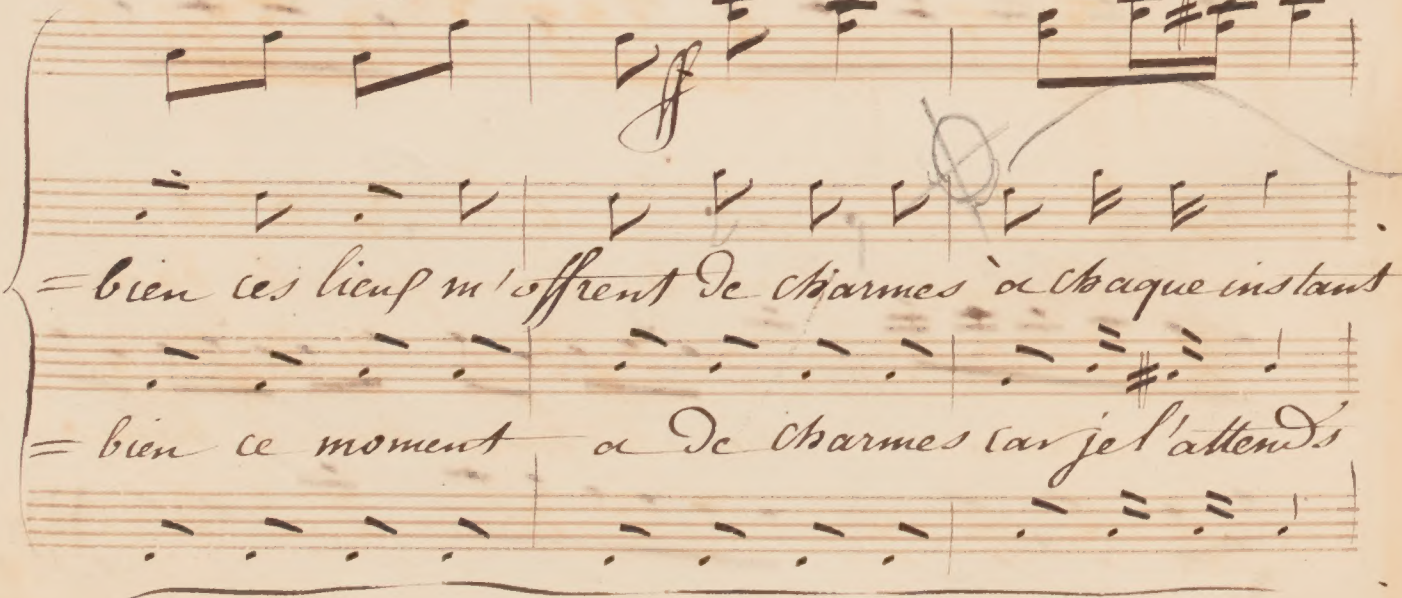 ff
= bien ces lieux m'offrent de charmes à chaque instant
= bien ce moment a de charmes car je l'attends